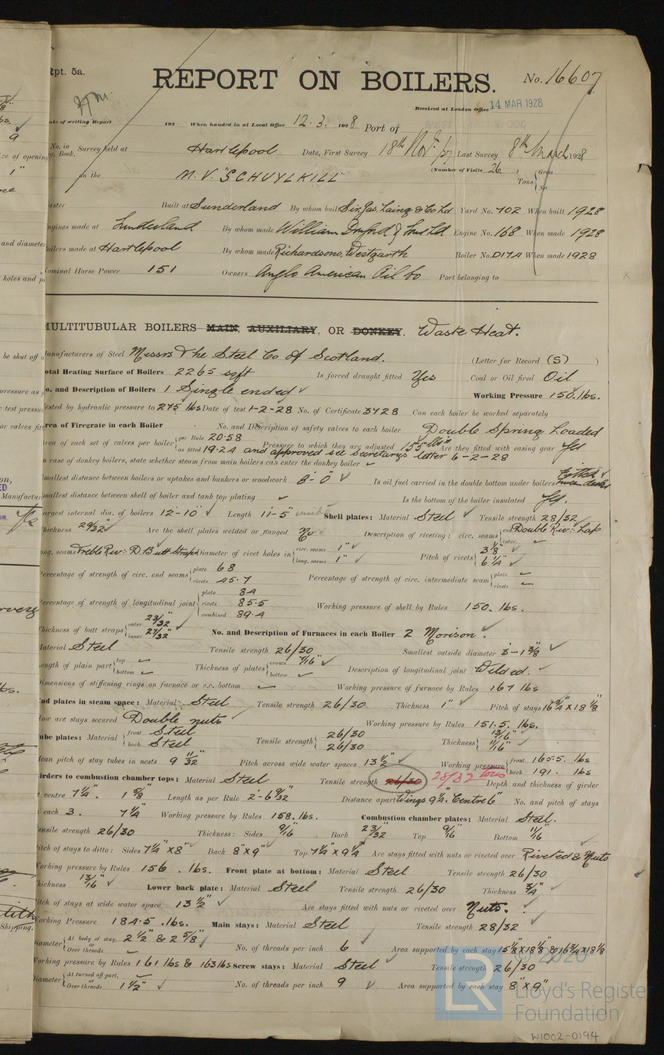 Rpt. 5a.
REPORT ON BOILERS.
No. 16607
Received at London Office 14 MAR 1928
Date of writing Report 192 When handed in at Local Office 12.3.1928 Port of
No. in Reg. Book. Survey held at Hartlepool Date, First Survey 18th Nov. 27 Last Survey 8th March 1928
on the M.V. "SCHUYLKILL" (Number of Visits 26) Tons Gross
Built at Sunderland By whom built Sir Jas. Laing & Co Ld Yard No. 702 When built 1928
Engines made at Sunderland By whom made William Doxford & Sons Ld. Engine No. 168 When made 1928
Boilers made at Hartlepool By whom made Richardsons, Westgarth Boiler No. D17A When made 1928
Nominal Horse Power 151 Owners Anglo American Oil Co Port belonging to
MULTITUBULAR BOILERS MAIN, AUXILIARY, OR DONKEY. Waste Heat.
Manufacturers of Steel Messrs The Steel Co of Scotland. (Letter for Record (S) )
Total Heating Surface of Boilers 2265 sq ft Is forced draught fitted Yes Coal or Oil fired Oil
No. and Description of Boilers 1 Single ended Working Pressure 150. lbs.
Tested by hydraulic pressure to 275 lbs Date of test 1-2-28 No. of Certificate 3728 Can each boiler be worked separately
Area of Firegrate in each Boiler No. and Description of safety valves to each boiler Double Spring Loaded
Area of each set of valves per boiler per Rule 20.58 as fitted 19.24 and approved see Secretarys letter 6-2-28 Pressure to which they are adjusted 155 lbs Are they fitted with easing gear Yes
In case of donkey boilers, state whether steam from main boilers can enter the donkey boiler
Smallest distance between boilers or uptakes and bunkers or woodwork 8'-0" Is oil fuel carried in the double bottom under boilers
Smallest distance between shell of boiler and tank top plating Is the bottom of the boiler insulated Yes.
Largest internal dia. of boilers 12'-10" Length 11'-5" Shell plates: Material Steel Tensile strength 28/32
Thickness 29/32" Are the shell plates welded or flanged No Description of riveting: circ. seams Double Riv: Lap
long. seams Treble Riv: D. Butt Straps Diameter of rivet holes in circ. seams 1" long. seams 1" Pitch of rivets 3 3/8" 6 1/4"
Percentage of strength of circ. end seams plate 68 rivets 45.7 Percentage of strength of circ. intermediate seam plate rivets
Percentage of strength of longitudinal joint plate 84 rivets 85.5 combined 89.4 Working pressure of shell by Rules 150. lbs.
Thickness of butt straps outer 23/32" inner 27/32" No. and Description of Furnaces in each Boiler 2 Morison.
Material Steel Tensile strength 26/30 Smallest outside diameter 3'-1 3/8"
Length of plain part top bottom Thickness of plates crown bottom 7/16" Description of longitudinal joint Welded.
Dimensions of stiffening rings on furnace or c.c. bottom Working pressure of furnace by Rules 167 lbs
End plates in steam space: Material Steel Tensile strength 26/30 Thickness 1" Pitch of stays 16 3/4" X 18 1/8"
How are stays secured Double nuts Working pressure by Rules 151.5. lbs.
Tube plates: Material front Steel back Steel Tensile strength 26/30 26/30 Thickness 13/16" 11/16"
Mean pitch of stay tubes in nests 9 11/32" Pitch across wide water spaces 13 1/2" Working pressure front 165.5. lbs back 191. lbs
Girders to combustion chamber tops: Material Steel Tensile strength 26/30 28/32 tons Depth and thickness of girder
at centre 7 1/4" 1 5/8" Length as per Rule 2'-6 9/32" Distance apart Wings 9 1/4" Centre 6" No. and pitch of stays
in each 3. 7 1/4" Working pressure by Rules 158. lbs. Combustion chamber plates: Material Steel.
Tensile strength 26/30 Thickness: Sides 9/16" Back 23/32" Top 9/16" Bottom 11/16"
Pitch of stays to ditto: Sides 7 1/4" X 8" Back 8" X 9" Top 7 1/4" X 9 1/4 Are stays fitted with nuts or riveted over Riveted & Nuts
Working pressure by Rules 156. lbs. Front plate at bottom: Material Steel Tensile strength 26/30
Thickness 13/16" Lower back plate: Material Steel Tensile strength 26/30 Thickness 3/4"
Pitch of stays at wide water space 13 1/2" Are stays fitted with nuts or riveted over Nuts.
Working Pressure 184.5. lbs. Main stays: Material Steel Tensile strength 28/32
Diameter At body of stay, or Over threads 2 1/2" & 2 5/8" No. of threads per inch 6 Area supported by each stay 15 1/8 X 18 1/8 & 16 3/4 X 18 1/8
Working pressure by Rules 161 lbs & 163 lbs Screw stays: Material Steel Tensile strength 26/30
Diameter At turned off part, or Over threads 1 1/2" No. of threads per inch 9 Area supported by each stay 8" X 9"
© 2020
LR Lloyd's Register
Foundation
W1002-0194